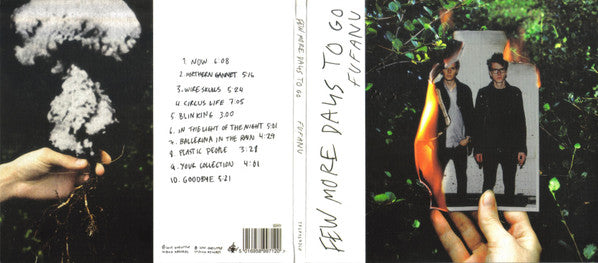 1. NOW 6:08
2. NORTHERN GANNET 5:16
3. WIRE SKULLS 5:24
4. CIRCUS LIFE 7:05
5. BLINKING 3:00
6. IN THE LIGHT OF THE NIGHT 5:01
7. BALLERINA IN THE RAIN 4:29
8. PLASTIC PEOPLE 3:28
9. YOUR COLLECTION 4:01
10. GOODBYE 5:21
FEW MORE DAYS TO GO FUFANU
FEW MORE DAYS TO GO
FUFANU